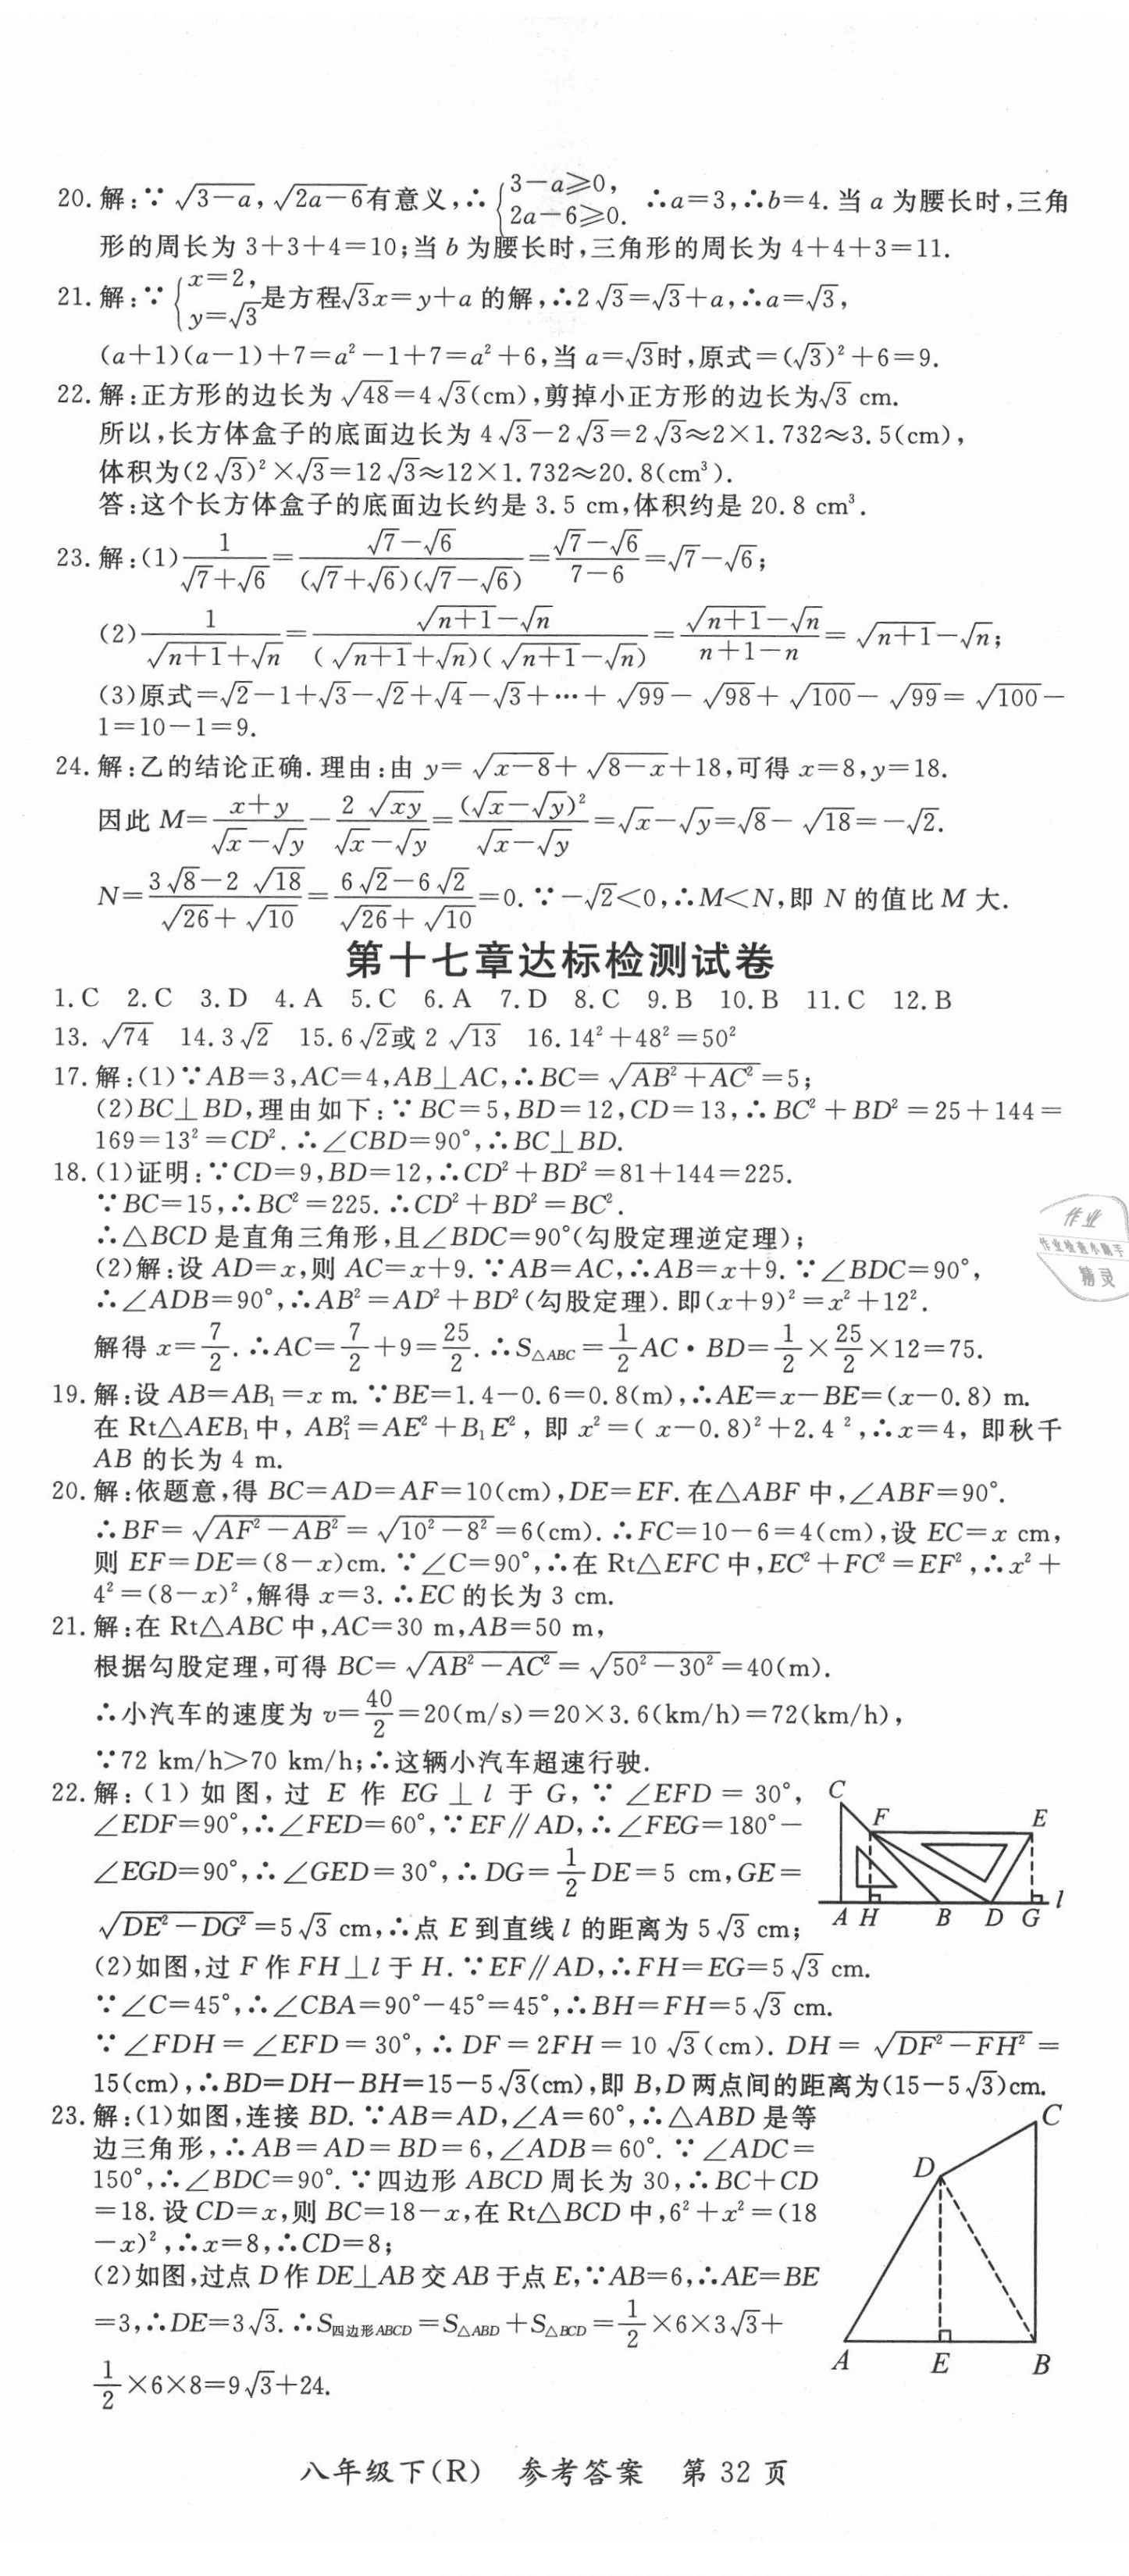 20. 解:∵ √(3-a), √(2a-6)有意义,∴ {3-a≥0, 2a-6≥0. ∴a=3,∴b=4. 当 a 为腰长时,三角
形的周长为 3+3+4=10;当 b 为腰长时,三角形的周长为 4+4+3=11.
21. 解:∵ {x=2, y=√3 是方程√3x=y+a 的解,∴2√3=√3+a,∴a=√3,
(a+1)(a-1)+7=a²-1+7=a²+6,当 a=√3时,原式=(√3)²+6=9.
22. 解:正方形的边长为 √48=4√3(cm),剪掉小正方形的边长为√3 cm.
所以,长方体盒子的底面边长为 4√3-2√3=2√3≈2×1.732≈3.5(cm),
体积为(2√3)²×√3=12√3≈12×1.732≈20.8(cm³).
答:这个长方体盒子的底面边长约是 3.5 cm,体积约是 20.8 cm³.
23. 解:(1) 1/(√7+√6)=(√7-√6)/((√7+√6)(√7-√6))=(√7-√6)/(7-6)=√7-√6;
(2) 1/(√(n+1)+√n)=(√(n+1)-√n)/((√(n+1)+√n)(√(n+1)-√n))=(√(n+1)-√n)/(n+1-n)=√(n+1)-√n;
(3)原式=√2-1+√3-√2+√4-√3+…+√99-√98+√100-√99=√100-
1=10-1=9.
24. 解:乙的结论正确. 理由:由 y=√(x-8)+√(8-x)+18,可得 x=8,y=18.
因此 M=(x+y)/(√x-√y)-2√(xy)/(√x-√y)=(√x-√y)²/(√x-√y)=√x-√y=√8-√18=-√2.
N=(3√8-2√18)/(√26+√10)=(6√2-6√2)/(√26+√10)=0. ∵-√2<0,∴M<N,即 N 的值比 M 大.
第十七章达标检测试卷
1. C 2. C 3. D 4. A 5. C 6. A 7. D 8. C 9. B 10. B 11. C 12. B
13. √74 14. 3√2 15. 6√2或 2√13 16. 14²+48²=50²
17. 解:(1)∵AB=3,AC=4,AB⊥AC,∴BC=√(AB²+AC²)=5;
(2)BC⊥BD,理由如下:∵BC=5,BD=12,CD=13,∴BC²+BD²=25+144=
169=13²=CD². ∴∠CBD=90°,∴BC⊥BD.
18. (1)证明:∵CD=9,BD=12,∴CD²+BD²=81+144=225.
∵BC=15,∴BC²=225. ∴CD²+BD²=BC².
∴△BCD 是直角三角形,且∠BDC=90°(勾股定理逆定理);
(2)解:设 AD=x,则 AC=x+9. ∵AB=AC,∴AB=x+9. ∵∠BDC=90°,
∴∠ADB=90°,∴AB²=AD²+BD²(勾股定理). 即(x+9)²=x²+12².
解得 x=7/2. ∴AC=7/2+9=25/2. ∴S△ABC=1/2AC·BD=1/2×25/2×12=75.
19. 解:设 AB=AB₁=x m. ∵BE=1.4-0.6=0.8(m),∴AE=x-BE=(x-0.8) m.
在 Rt△AEB₁中, AB₁²=AE²+B₁E², 即 x²=(x-0.8)²+2.4²,∴x=4, 即秋千
AB 的长为 4 m.
20. 解:依题意,得 BC=AD=AF=10(cm),DE=EF. 在△ABF 中,∠ABF=90°.
∴BF=√(AF²-AB²)=√(10²-8²)=6(cm). ∴FC=10-6=4(cm),设 EC=x cm,
则 EF=DE=(8-x)cm. ∵∠C=90°,∴在 Rt△EFC 中,EC²+FC²=EF²,∴x²+
4²=(8-x)²,解得 x=3. ∴EC 的长为 3 cm.
21. 解:在 Rt△ABC 中,AC=30 m,AB=50 m,
根据勾股定理,可得 BC=√(AB²-AC²)=√(50²-30²)=40(m).
∴小汽车的速度为 v=40/2=20(m/s)=20×3.6(km/h)=72(km/h),
∵72 km/h>70 km/h;∴这辆小汽车超速行驶.
22. 解:(1)如图,过 E 作 EG⊥l 于 G,∵∠EFD=30°,
∠EDF=90°,∴∠FED=60°,∵EF∥AD,∴∠FEG=180°-
∠EGD=90°,∴∠GED=30°,∴DG=1/2DE=5 cm,GE=
√(DE²-DG²)=5√3 cm,∴点 E 到直线 l 的距离为 5√3 cm;
C F E
A H B D G l
(2)如图,过 F 作 FH⊥l 于 H. ∵EF∥AD,∴FH=EG=5√3 cm.
∵∠C=45°,∴∠CBA=90°-45°=45°,∴BH=FH=5√3 cm.
∵∠FDH=∠EFD=30°,∴DF=2FH=10√3(cm). DH=√(DF²-FH²)=
15(cm),∴BD=DH-BH=15-5√3(cm),即 B,D 两点间的距离为(15-5√3)cm.
23. 解:(1)如图,连接 BD. ∵AB=AD,∠A=60°,∴△ABD 是等
边三角形,∴AB=AD=BD=6,∠ADB=60°. ∵∠ADC=
150°,∴∠BDC=90°. ∵四边形 ABCD 周长为 30,∴BC+CD
=18. 设 CD=x,则 BC=18-x,在 Rt△BCD 中,6²+x²=(18
-x)²,∴x=8,∴CD=8;
(2)如图,过点 D 作 DE⊥AB 交 AB 于点 E,∵AB=6,∴AE=BE
=3,∴DE=3√3. ∴S四边形ABCD=S△ABD+S△BCD=1/2×6×3√3+
1/2×6×8=9√3+24.
C
D
A E B
八年级下(R) 参考答案 第 32 页
作业
作业检查小助手
精灵